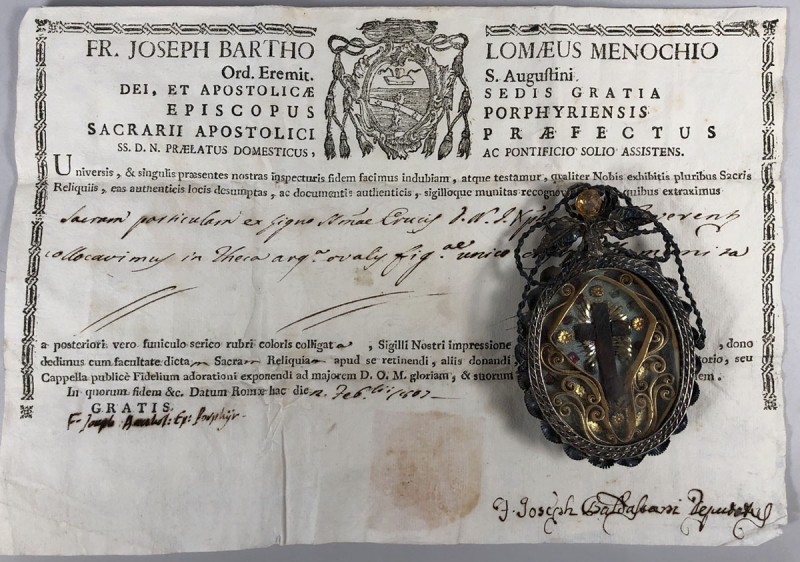 FR. JOSEPH BARTHO LOMÆUS MENOCHIO
Ord. Eremit. S. Augustini
DEI, ET APOSTOLICÆ SEDIS GRATIA
EPISCOPUS PORPHYRIENSIS
SACRARII APOSTOLICI PRÆFECTUS
SS. D. N. PRÆLATUS DOMESTICUS, AC PONTIFICIO SOLIO ASSISTENS.
Universis, & singulis præsentes nostras inspecturis fidem facimus indubiam, atque testamur, qualiter Nobis exhibitis pluribus Sacris
Reliquiis, eas authenticis locis desumptas, ac documentis authenticis, sigilloque munitas recognovi quibus extraximus
Sacram particulam ex Ligno Smae Crucis D. N. J. reverent
collocavimus in theca arga ovalis figae unico
a posteriori vero funiculo serico rubri coloris colligata, Sigilli Nostri impressione , dono
dedimus cum facultate dictam Sacram Reliquiam apud se retinendi, aliis donandi torio, seu
Cappella publicè Fidelium adorationi exponendi ad majorem D. O. M. gloriam, & suorum em.
In quorum fidem &c. Datum Romæ hac die
GRATIS
F. Joseph Barthol: Ep: Porphyr.
F. Joseph Baldassari Deputatus